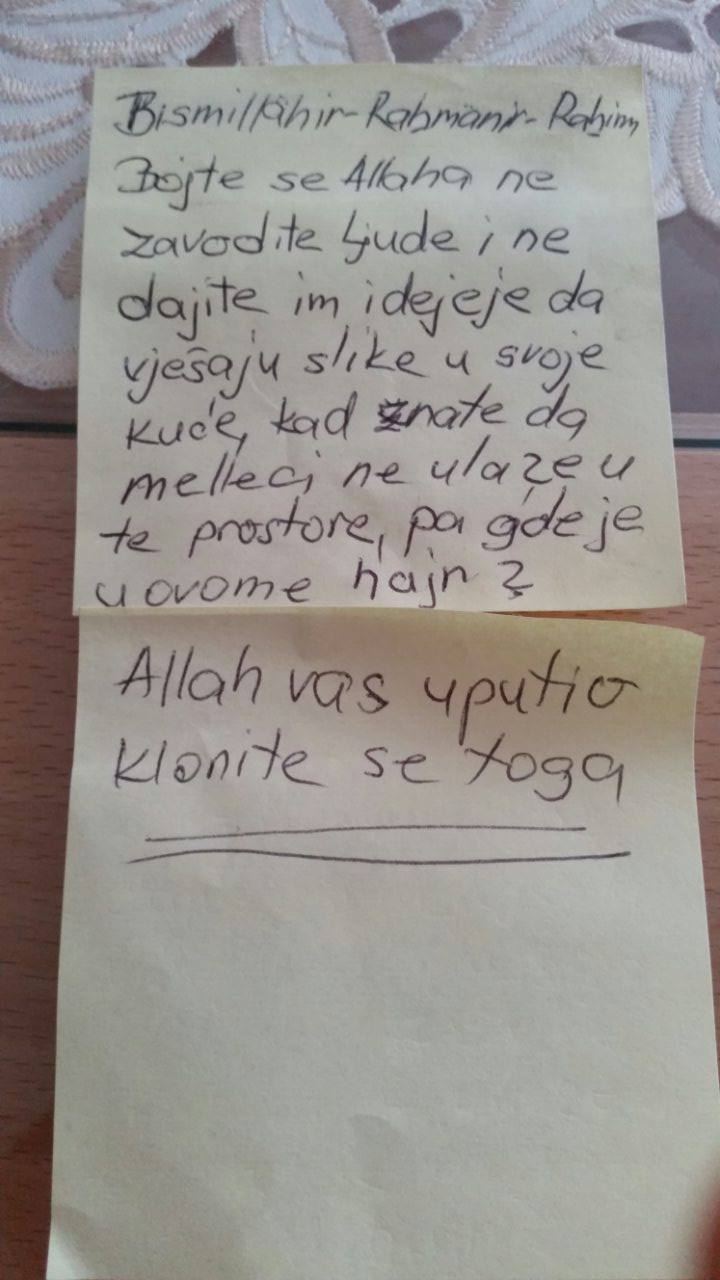 Bismillahir-Rahmanir-Rahim
Bojte se Allaha ne
zavodite ljude i ne
dajite im idejeje da
vješaju slike u svoje
kuće, kad znate da
melleci ne ulaze u
te prostore, pa gdeje
u ovome hajr?
Allah vas uputio
klonite se toga